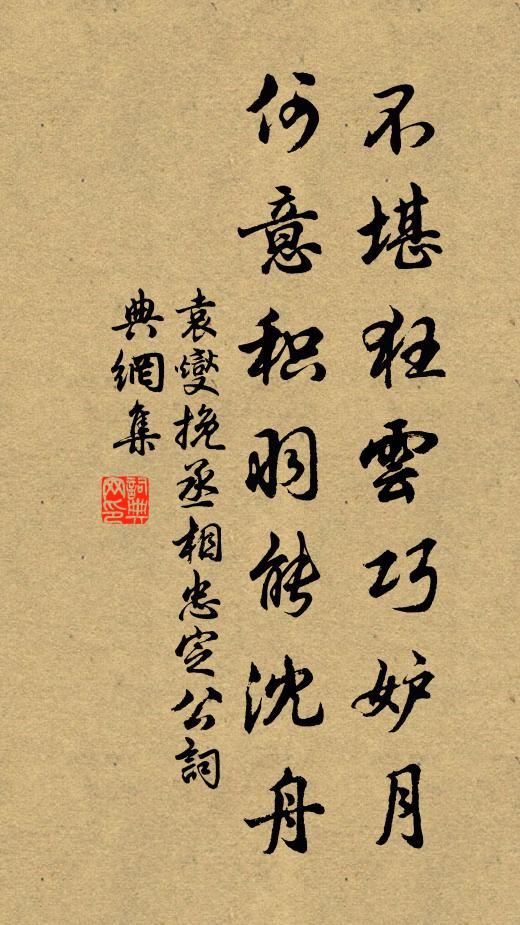 不堪狂雲巧妒月
何意积羽能沈舟
袁燮挽丞相忠定公詞
典網集
詞典网印